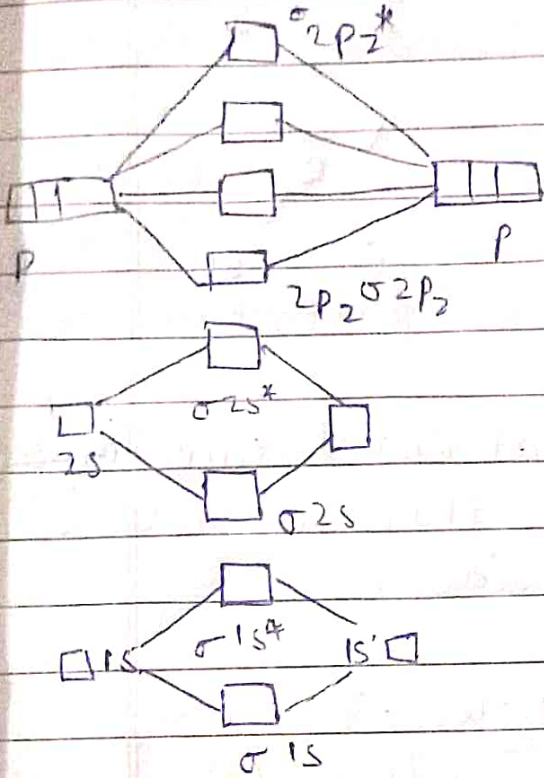 σ2p2*
P P
2p2 σ2p2
σ2s*
2s
σ2s
σ1s*
1s 1s'
σ1s